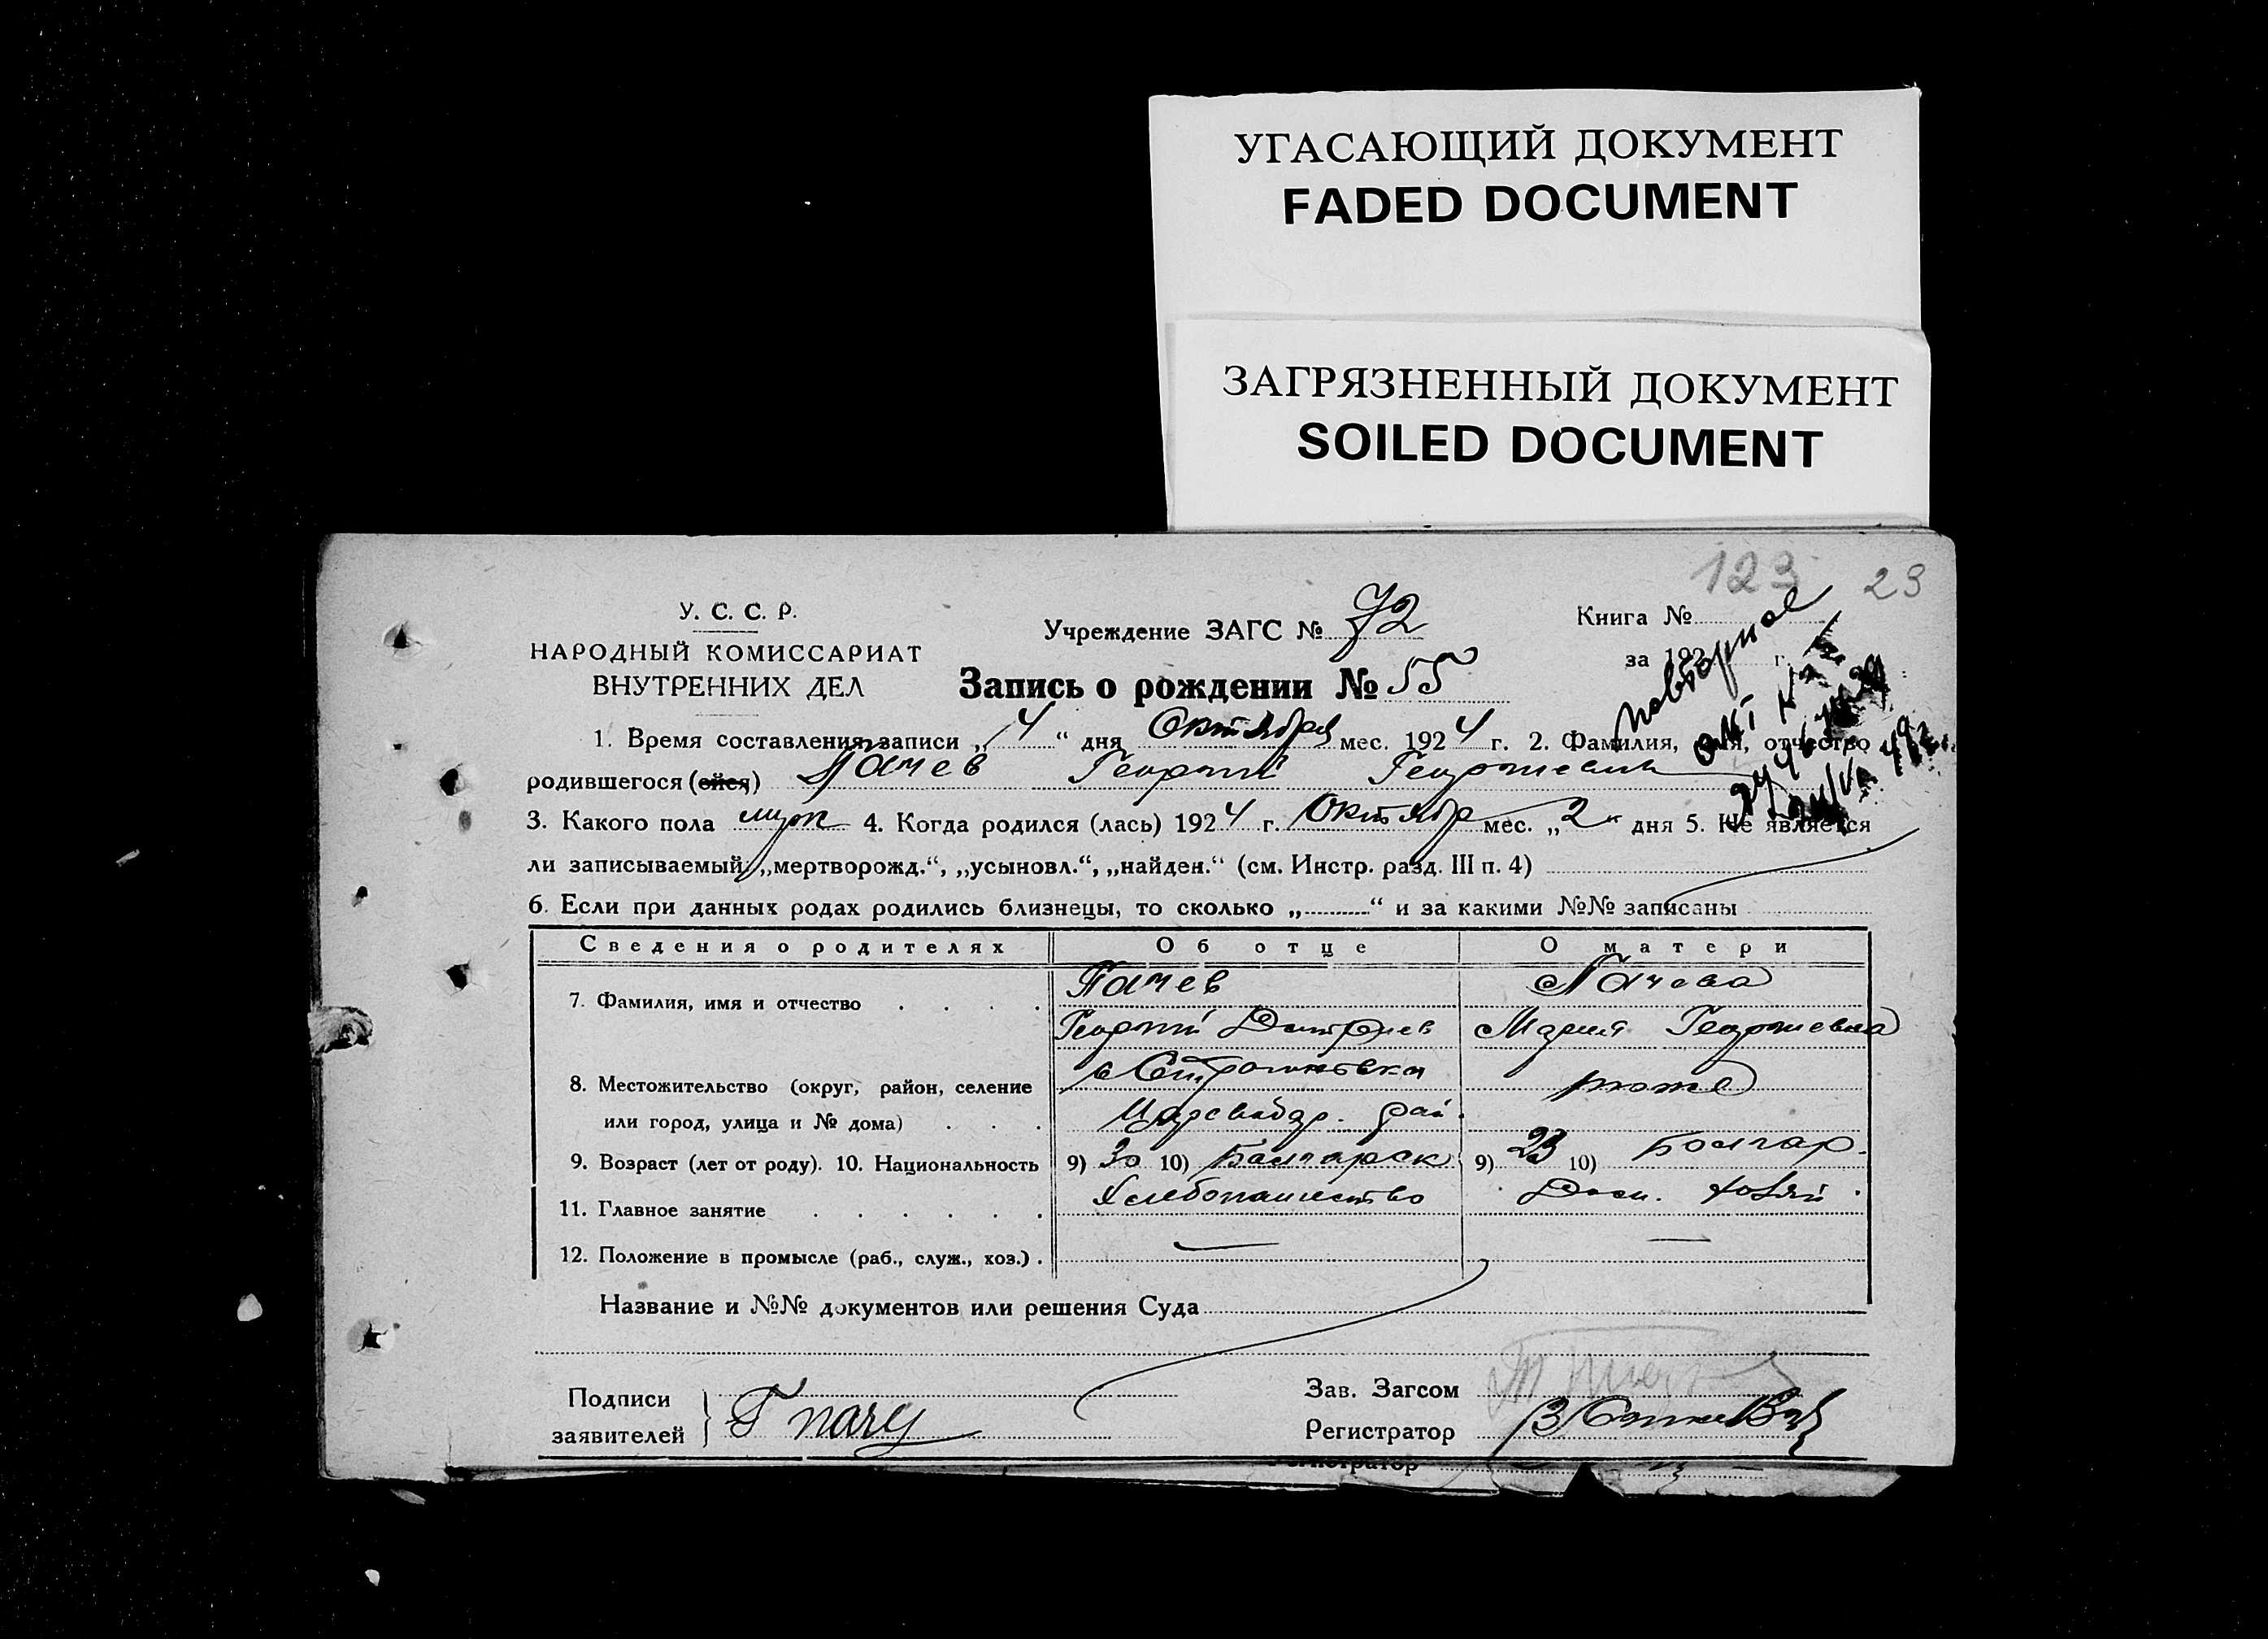 УГАСАЮЩИЙ ДОКУМЕНТ
FADED DOCUMENT
ЗАГРЯЗНЕННЫЙ ДОКУМЕНТ
SOILED DOCUMENT
123 23
У. С. С. Р.
НАРОДНЫЙ КОМИССАРИАТ
ВНУТРЕННИХ ДЕЛ
Учреждение ЗАГС № 72
Запись о рождении № 55
Книга №
за 192 г.
повторное
1. Время составления записи „ 4 “ дня Октября мес. 1924 г. 2. Фамилия, имя, отчество
родившегося (ейся) Пачев Георгий Георгиевич
3. Какого пола муж 4. Когда родился (лась) 1924 г. Октябр мес. „ 2 “ дня 5. Не является
ли записываемый: „мертворожд.“, „усыновл.“, „найден.“ (см. Инстр. разд. III п. 4)
6. Если при данных родах родились близнецы, то сколько „ “ и за какими №№ записаны
Сведения о родителях Об отце О матери
7. Фамилия, имя и отчество Пачев Пачева
Георгий Дмитриев Мария Георгиевна
8. Местожительство (округ, район, селение тоже
или город, улица и № дома) рай.
9. Возраст (лет от роду). 10. Национальность 9) 30 10) Болгарск 9) 23 10) Болгар.
11. Главное занятие Хлебопашество Дом. хозяй.
12. Положение в промысле (раб., служ., хоз.) . — —
Название и №№ документов или решения Суда
Подписи
заявителей Г пачу
Зав. Загсом
Регистратор
Регистратор